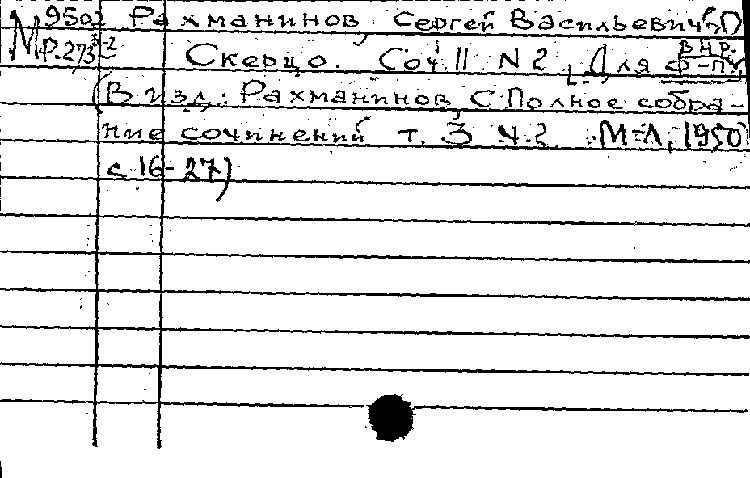 950 Рахманинов, Сергей Васильевич
М Р.273 3-2 Скерцо. Соч. 11 N 2, Для ф-п.
(В изд.: Рахманинов, С. Полное собра-
ние сочинений т. 3 ч. 2. М-Л, 1950
с. 16-27)